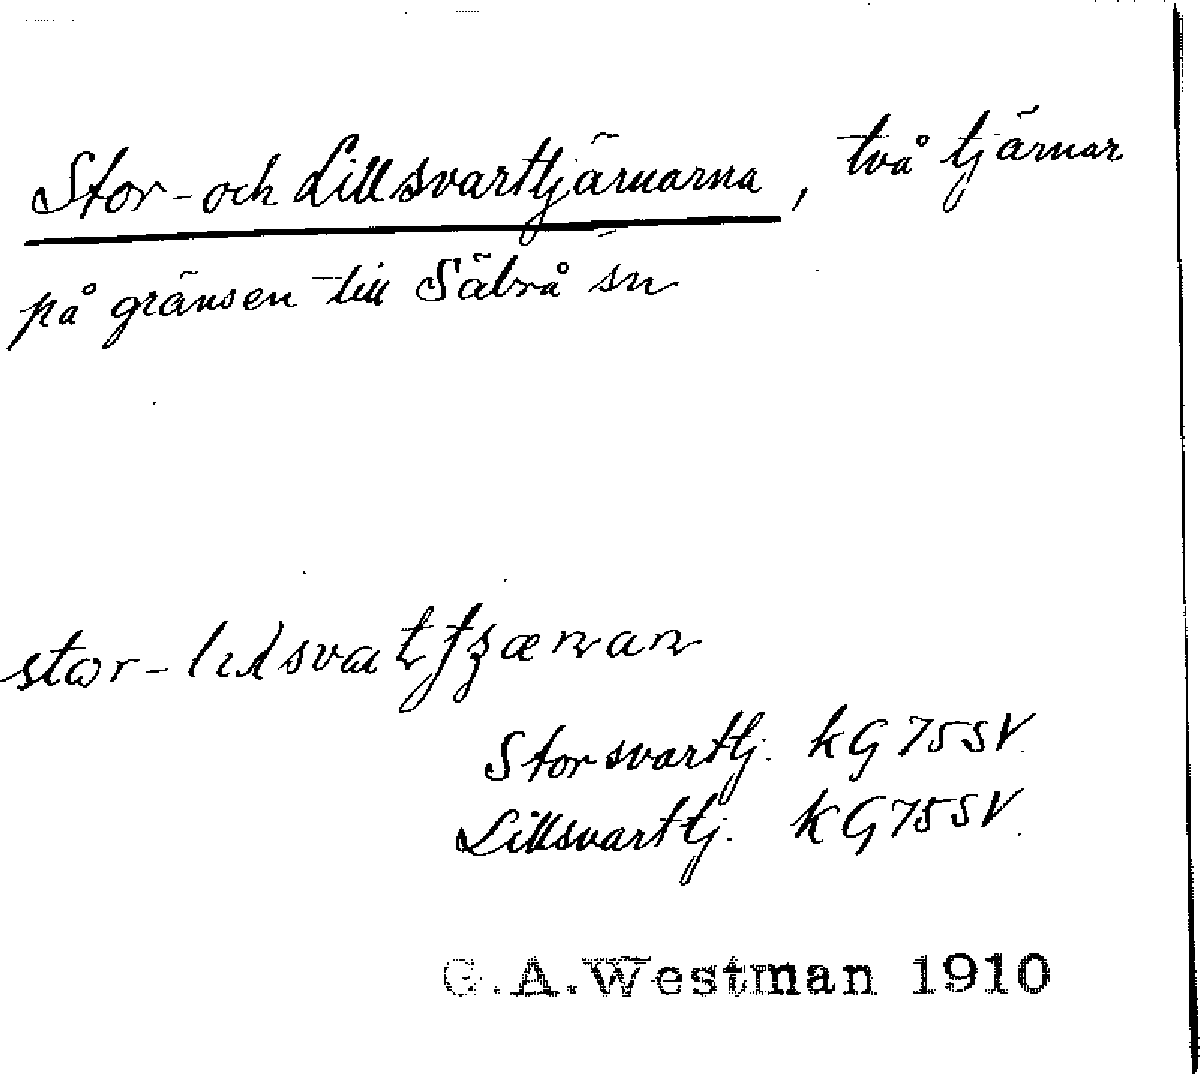 Stor- och Lillsvarttjärnarna, två tjärnar
på gränsen till Säbrå sn
Storsvarttj. KG 75 SV.
Lillsvarttj. KG 75 SV.
G.A.Westman 1910